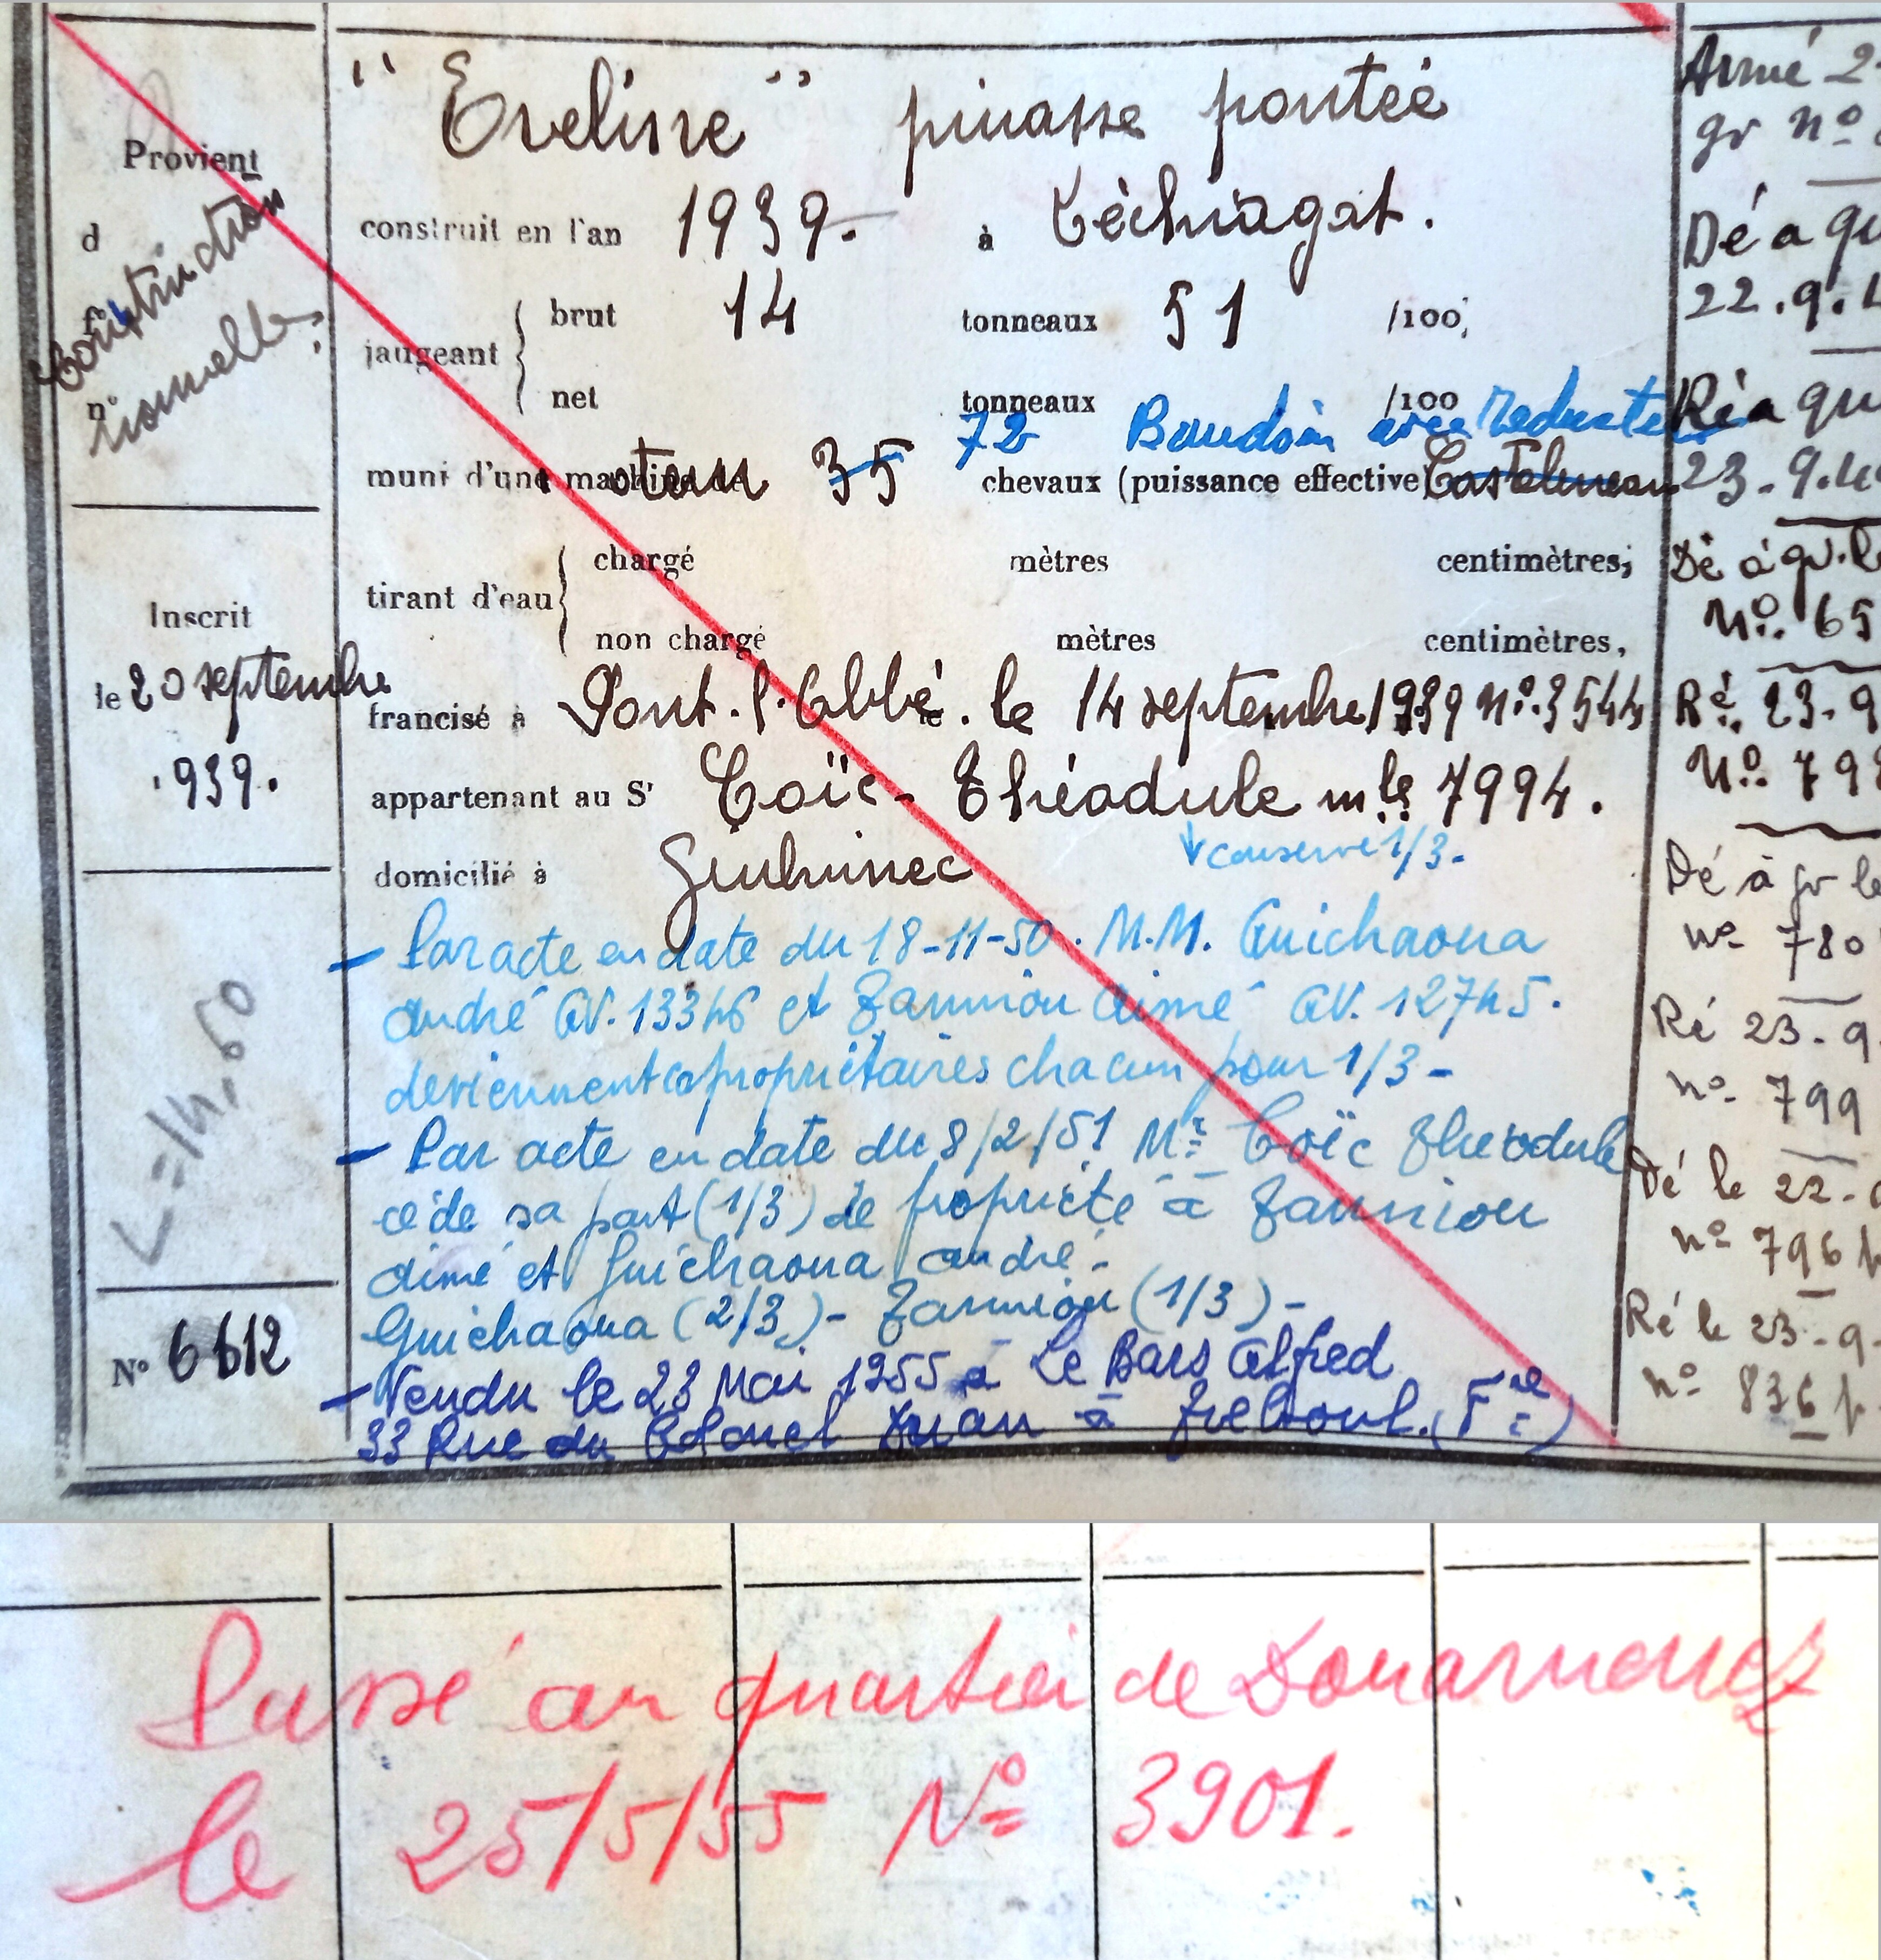 Provient
d
f°
n°
Construction
nouvelle
Inscrit
le 20 septembre
1939.
L = 14,50
N° 6612
"Eveline" pinasse pontée
construit en l'an 1939. à Léchiagat.
jaugeant
brut 14 tonneaux 51 /100,
net tonneaux /100
72 Baudoin avec reducteur
muni d'une machine de moteur 35 chevaux (puissance effective) Castelneau
tirant d'eau
chargé mètres centimètres;
non chargé mètres centimètres,
francisé à Pont-l'Abbé. le 14 septembre 1939 N°. 3544
appartenant au Sr Coïc - Théodule mle 7994.
conserve 1/3-
domicilié à Guilvinec
- Par acte en date du 18-11-50. M.M. Guichaoua
andré GV. 13346 et Tanniou aimé GV. 12745.
deviennent copropriétaires chacun pour 1/3 -
- Par acte en date du 8/2/51 Mr Coïc Théodule
cède sa part (1/3) de propriété à Tanniou
aimé et Guichaoua andré.
Guichaoua (2/3) - Tanniou (1/3) -
- Vendu le 23 Mai 1955 à Le Bars Alfred
33 Rue du Colonel à Tréboul. (Fre)
Armé 2
gr n°
Dé à qu
22.9.4
Ré à qu
23-9.4
Dé à qr. l
N°. 65
Ré. 23.9
N°. 79
Dé à gr le
n° 780
Ré 23-9
n° 799
Dé le 22-
n° 796
Ré le 23-9-
n° 836
Passé au quartier de Douarnenez
le 25/5/55 N° 3901.